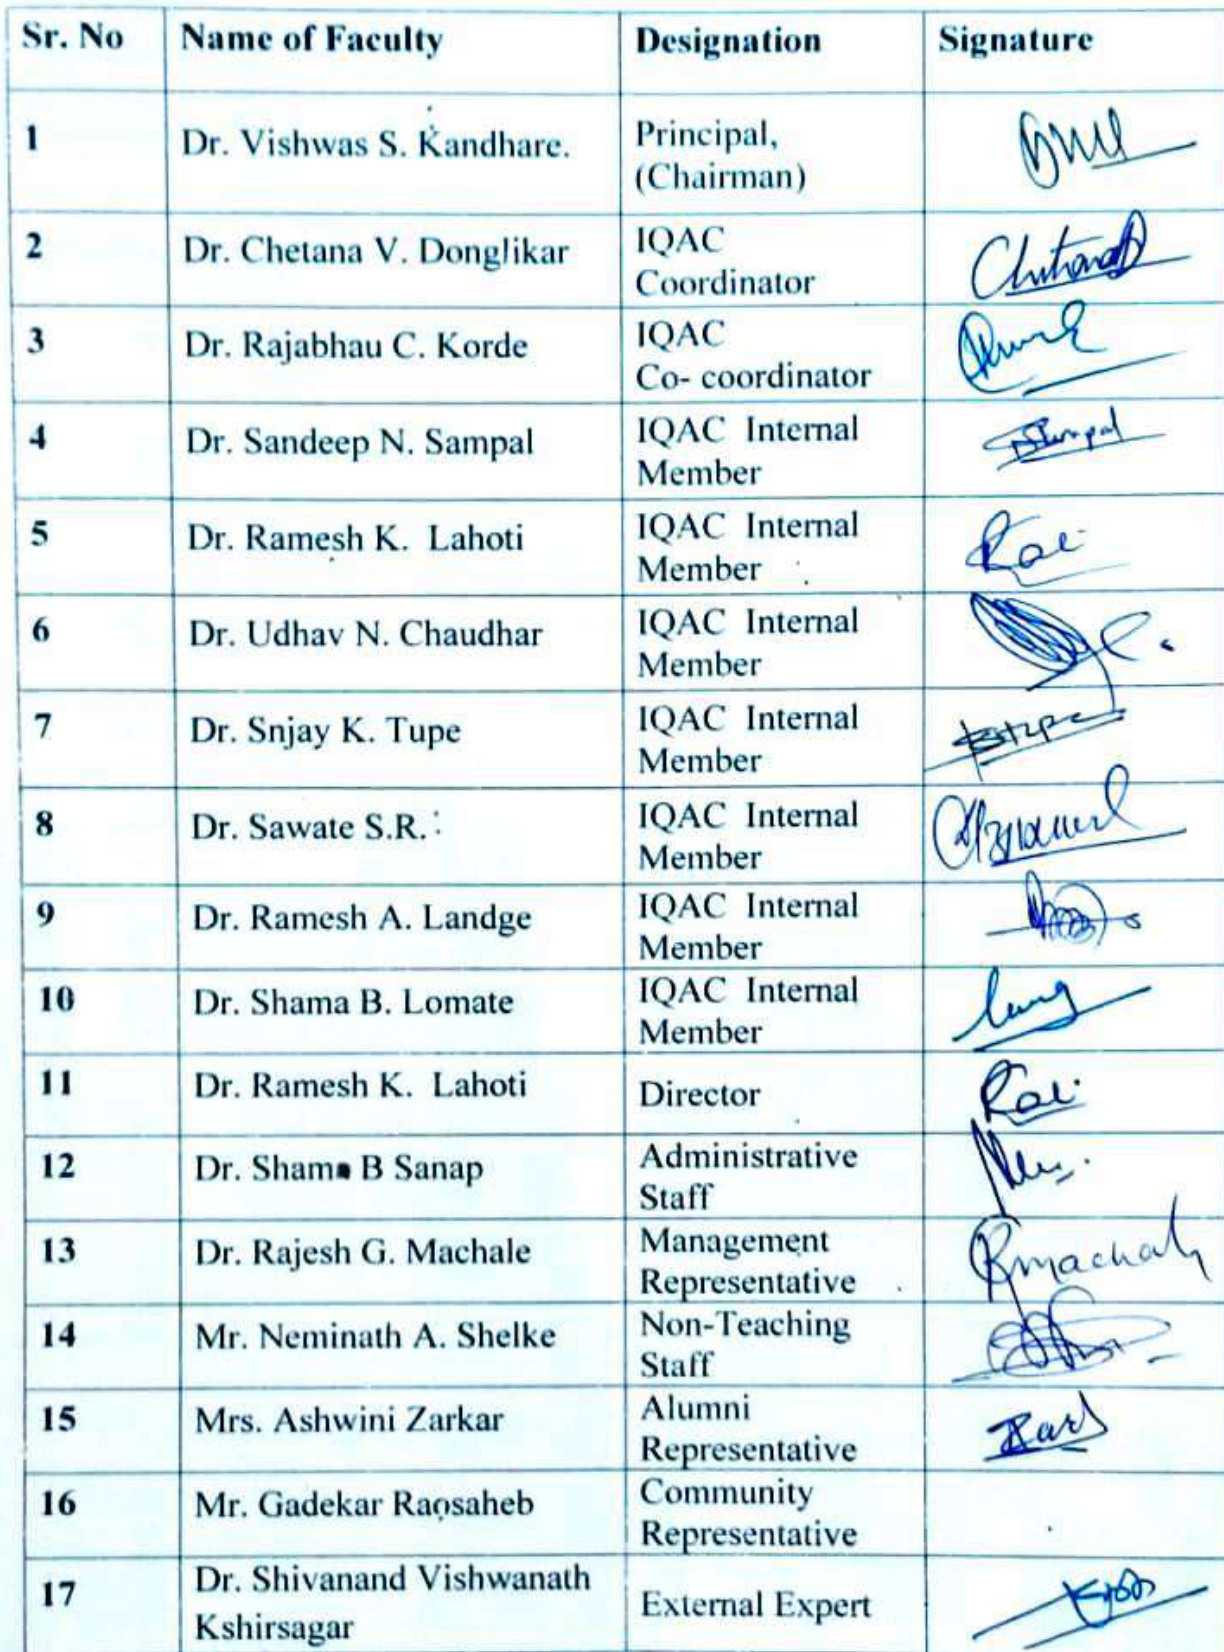 Sr. No Name of Faculty Designation Signature
1 Dr. Vishwas S. Kandhare. Principal,
(Chairman)
2 Dr. Chetana V. Donglikar IQAC
Coordinator
3 Dr. Rajabhau C. Korde IQAC
Co- coordinator
4 Dr. Sandeep N. Sampal IQAC Internal
Member
5 Dr. Ramesh K. Lahoti IQAC Internal
Member
6 Dr. Udhav N. Chaudhar IQAC Internal
Member
7 Dr. Snjay K. Tupe IQAC Internal
Member
8 Dr. Sawate S.R. IQAC Internal
Member
9 Dr. Ramesh A. Landge IQAC Internal
Member
10 Dr. Shama B. Lomate IQAC Internal
Member
11 Dr. Ramesh K. Lahoti Director
12 Dr. Shama B Sanap Administrative
Staff
13 Dr. Rajesh G. Machale Management
Representative
14 Mr. Neminath A. Shelke Non-Teaching
Staff
15 Mrs. Ashwini Zarkar Alumni
Representative
16 Mr. Gadekar Raosaheb Community
Representative
17 Dr. Shivanand Vishwanath
Kshirsagar External Expert